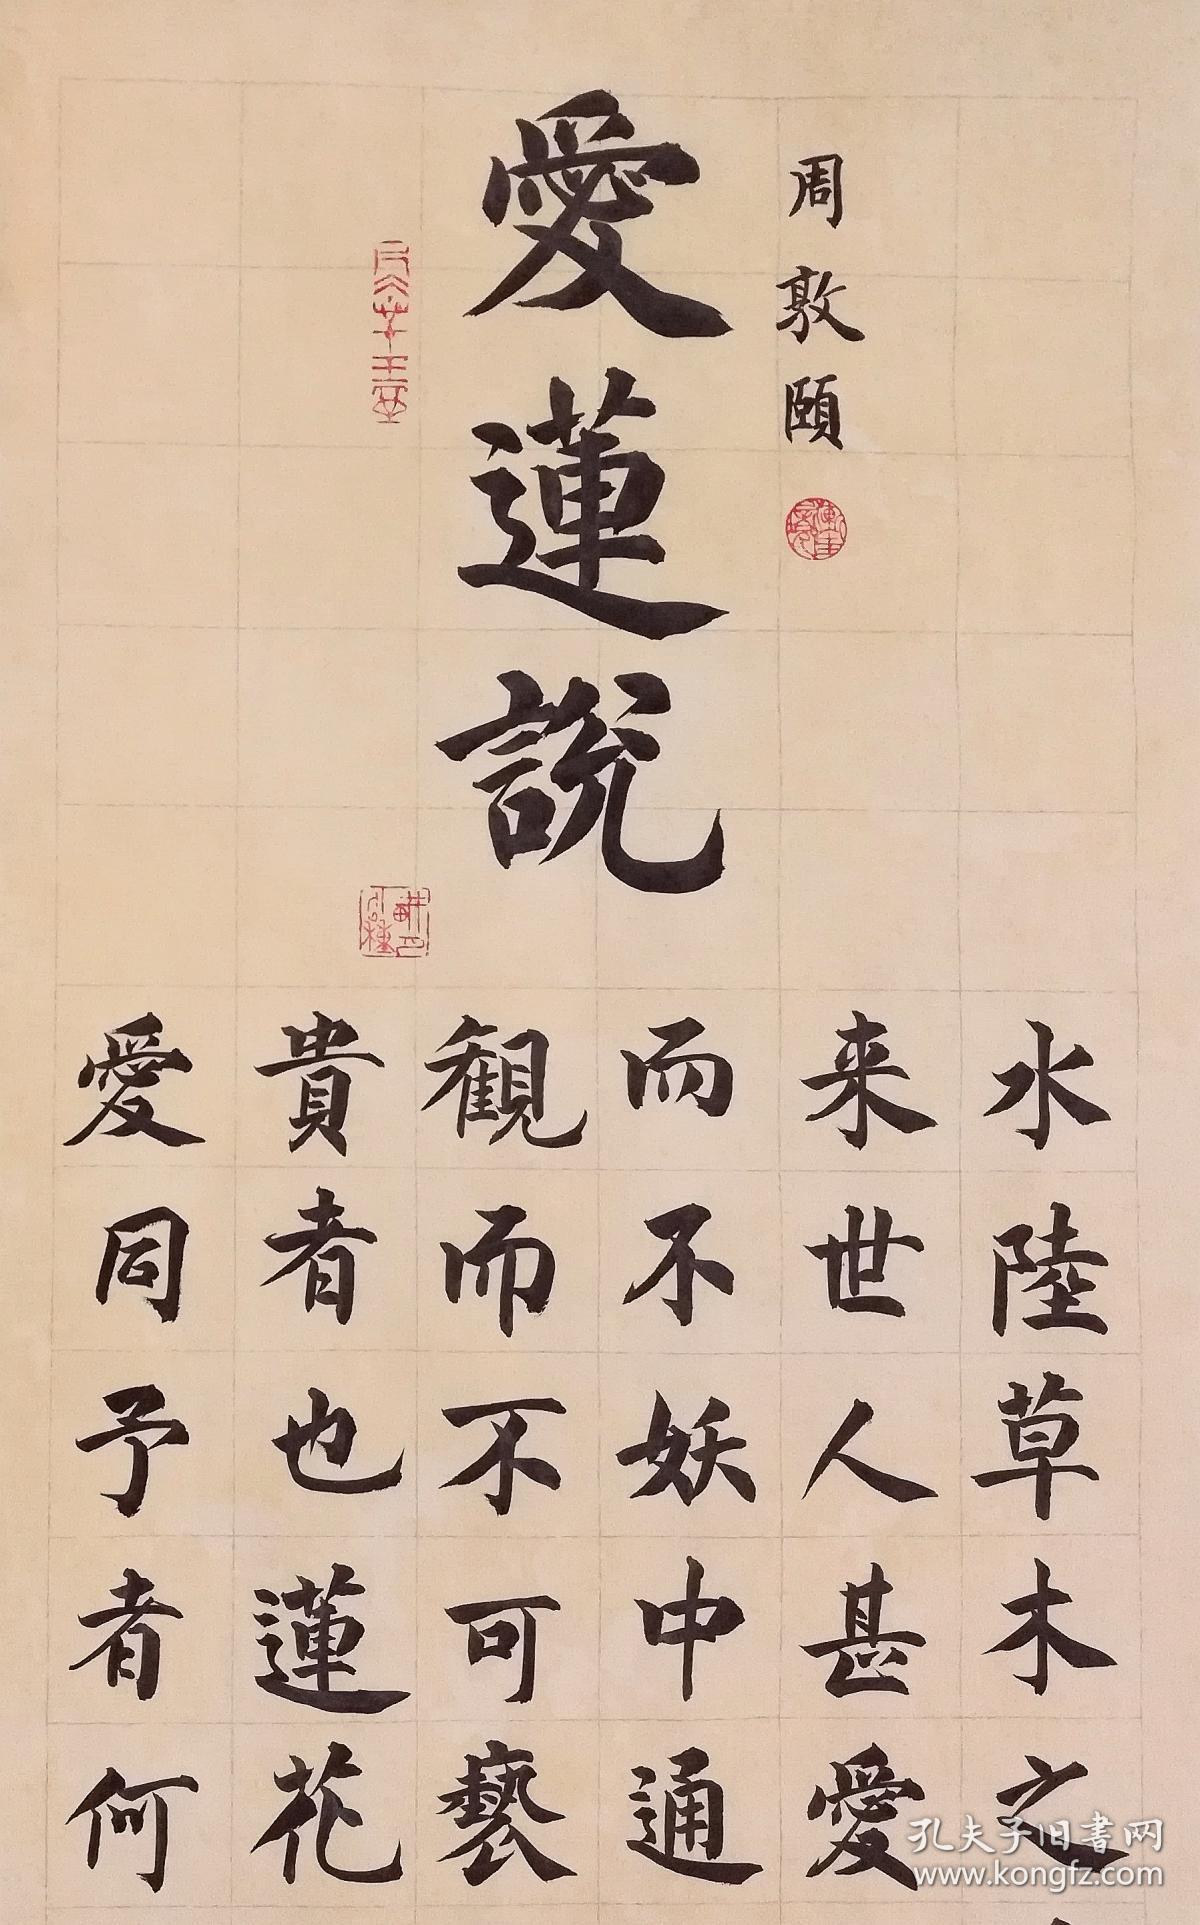 周敦頤
愛蓮説
水陸草木之
来世人甚愛
而不妖中通
觀而不可褻
貴者也蓮花
愛同予者何
孔夫子旧書网
www.kongfz.com